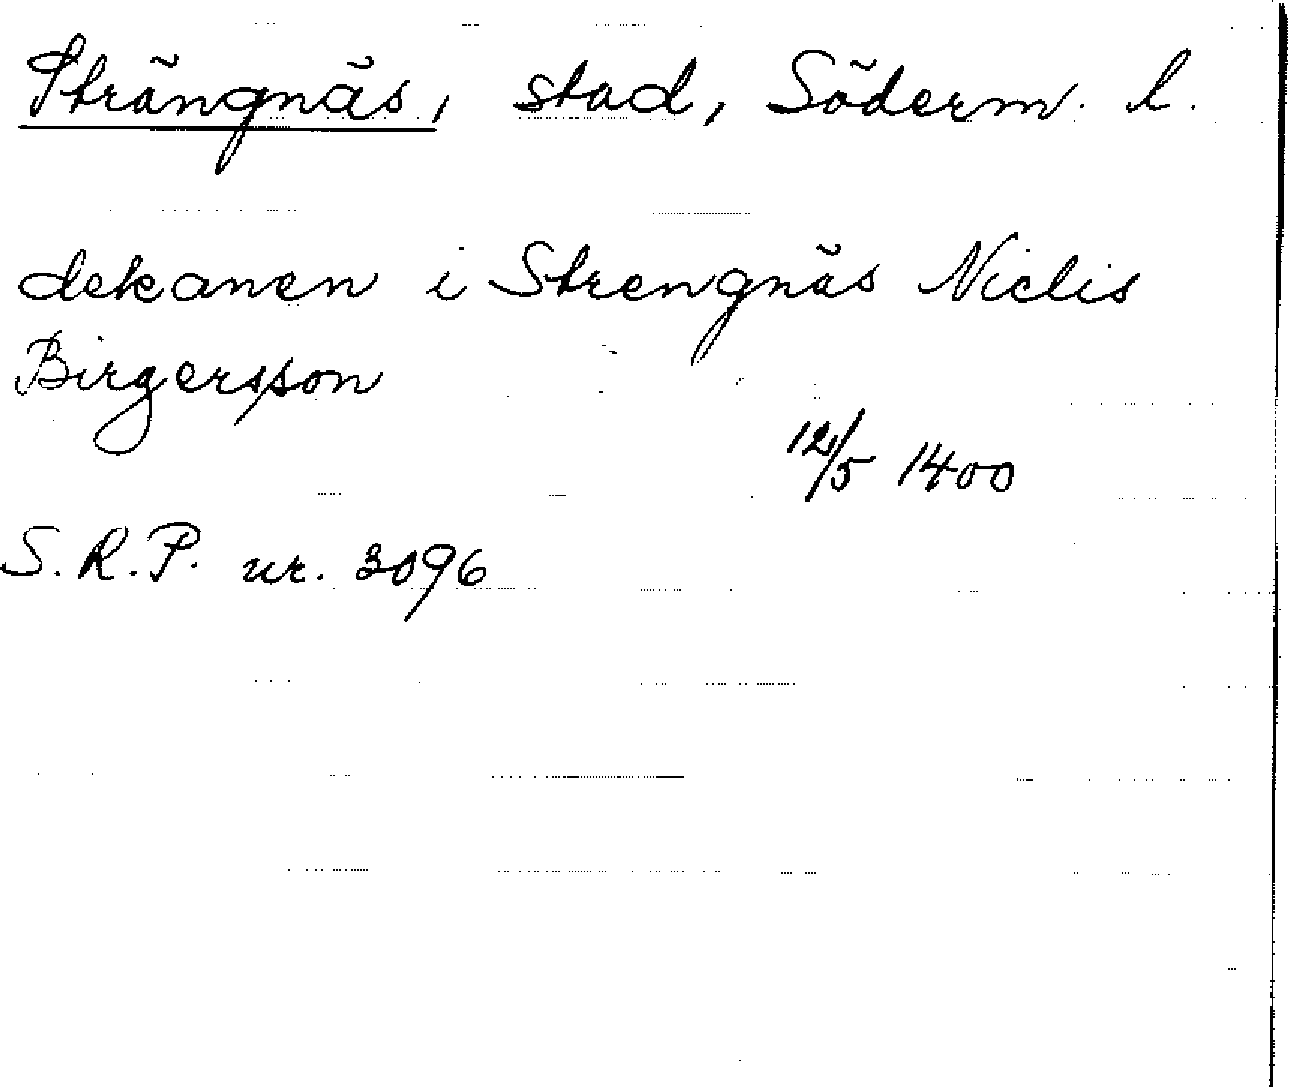 Strängnäs, stad, Söderm. l.
dekanen i Strengnäs Niclis
Birgersson
12/5 1400
S.R.P. nr. 3096